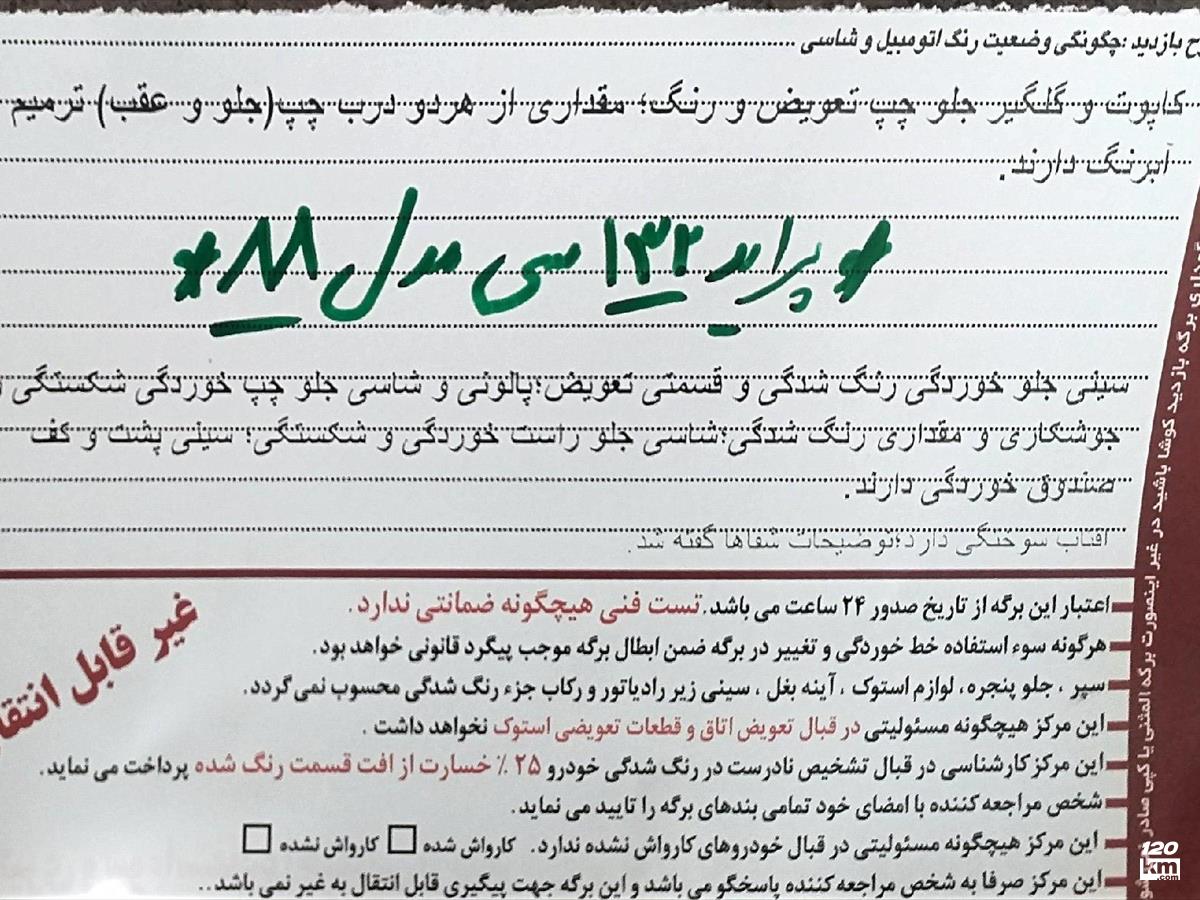 ح بازدید :چگونگی وضعیت رنگ اتومبیل و شاسی
کاپوت و گلگیر جلو چپ تعویض و رنگ؛ مقداری از هردو درب چپ(جلو و عقب) ترمیم
آبرنگ دارند.
* پراید ۱۳۲ سی مدل ۸۸ *
سینی جلو خوردگی رنگ شدگی و قسمتی تعویض؛پالونی و شاسی جلو چپ خوردگی شکستگی و
جوشکاری و مقداری رنگ شدگی؛شاسی جلو راست خوردگی و شکستگی؛ سینی پشت و کف
صندوق خوردگی دارند.
افتاب سوختگی دارد؛توضیحات شفاها گفته شد.
اعتبار این برگه از تاریخ صدور ۲۴ ساعت می باشد. تست فنی هیچگونه ضمانتی ندارد.
هرگونه سوء استفاده خط خوردگی و تغییر در برگه ضمن ابطال برگه موجب پیگرد قانونی خواهد بود.
سپر ، جلو پنجره، لوازم استوک ، آینه بغل ، سینی زیر رادیاتور و رکاب جزء رنگ شدگی محسوب نمی گردد.
این مرکز هیچگونه مسئولیتی در قبال تعویض اتاق و قطعات تعویضی استوک نخواهد داشت .
این مرکز کارشناسی در قبال تشخیص نادرست در رنگ شدگی خودرو ۲۵ ٪ خسارت از افت قسمت رنگ شده پرداخت می نماید.
شخص مراجعه کننده با امضای خود تمامی بندهای برگه را تایید می نماید.
این مرکز هیچگونه مسئولیتی در قبال خودروهای کارواش نشده ندارد. کارواش شده کارواش نشده
این مرکز صرفا به شخص مراجعه کننده پاسخگو می باشد و این برگه جهت پیگیری قابل انتقال به غیر نمی باشد..
غیر قابل انتقا
داری برگه بازدید کوشا باشید در غیر اینصورت برگه المثنی یا کپی صادر
120
km
.com